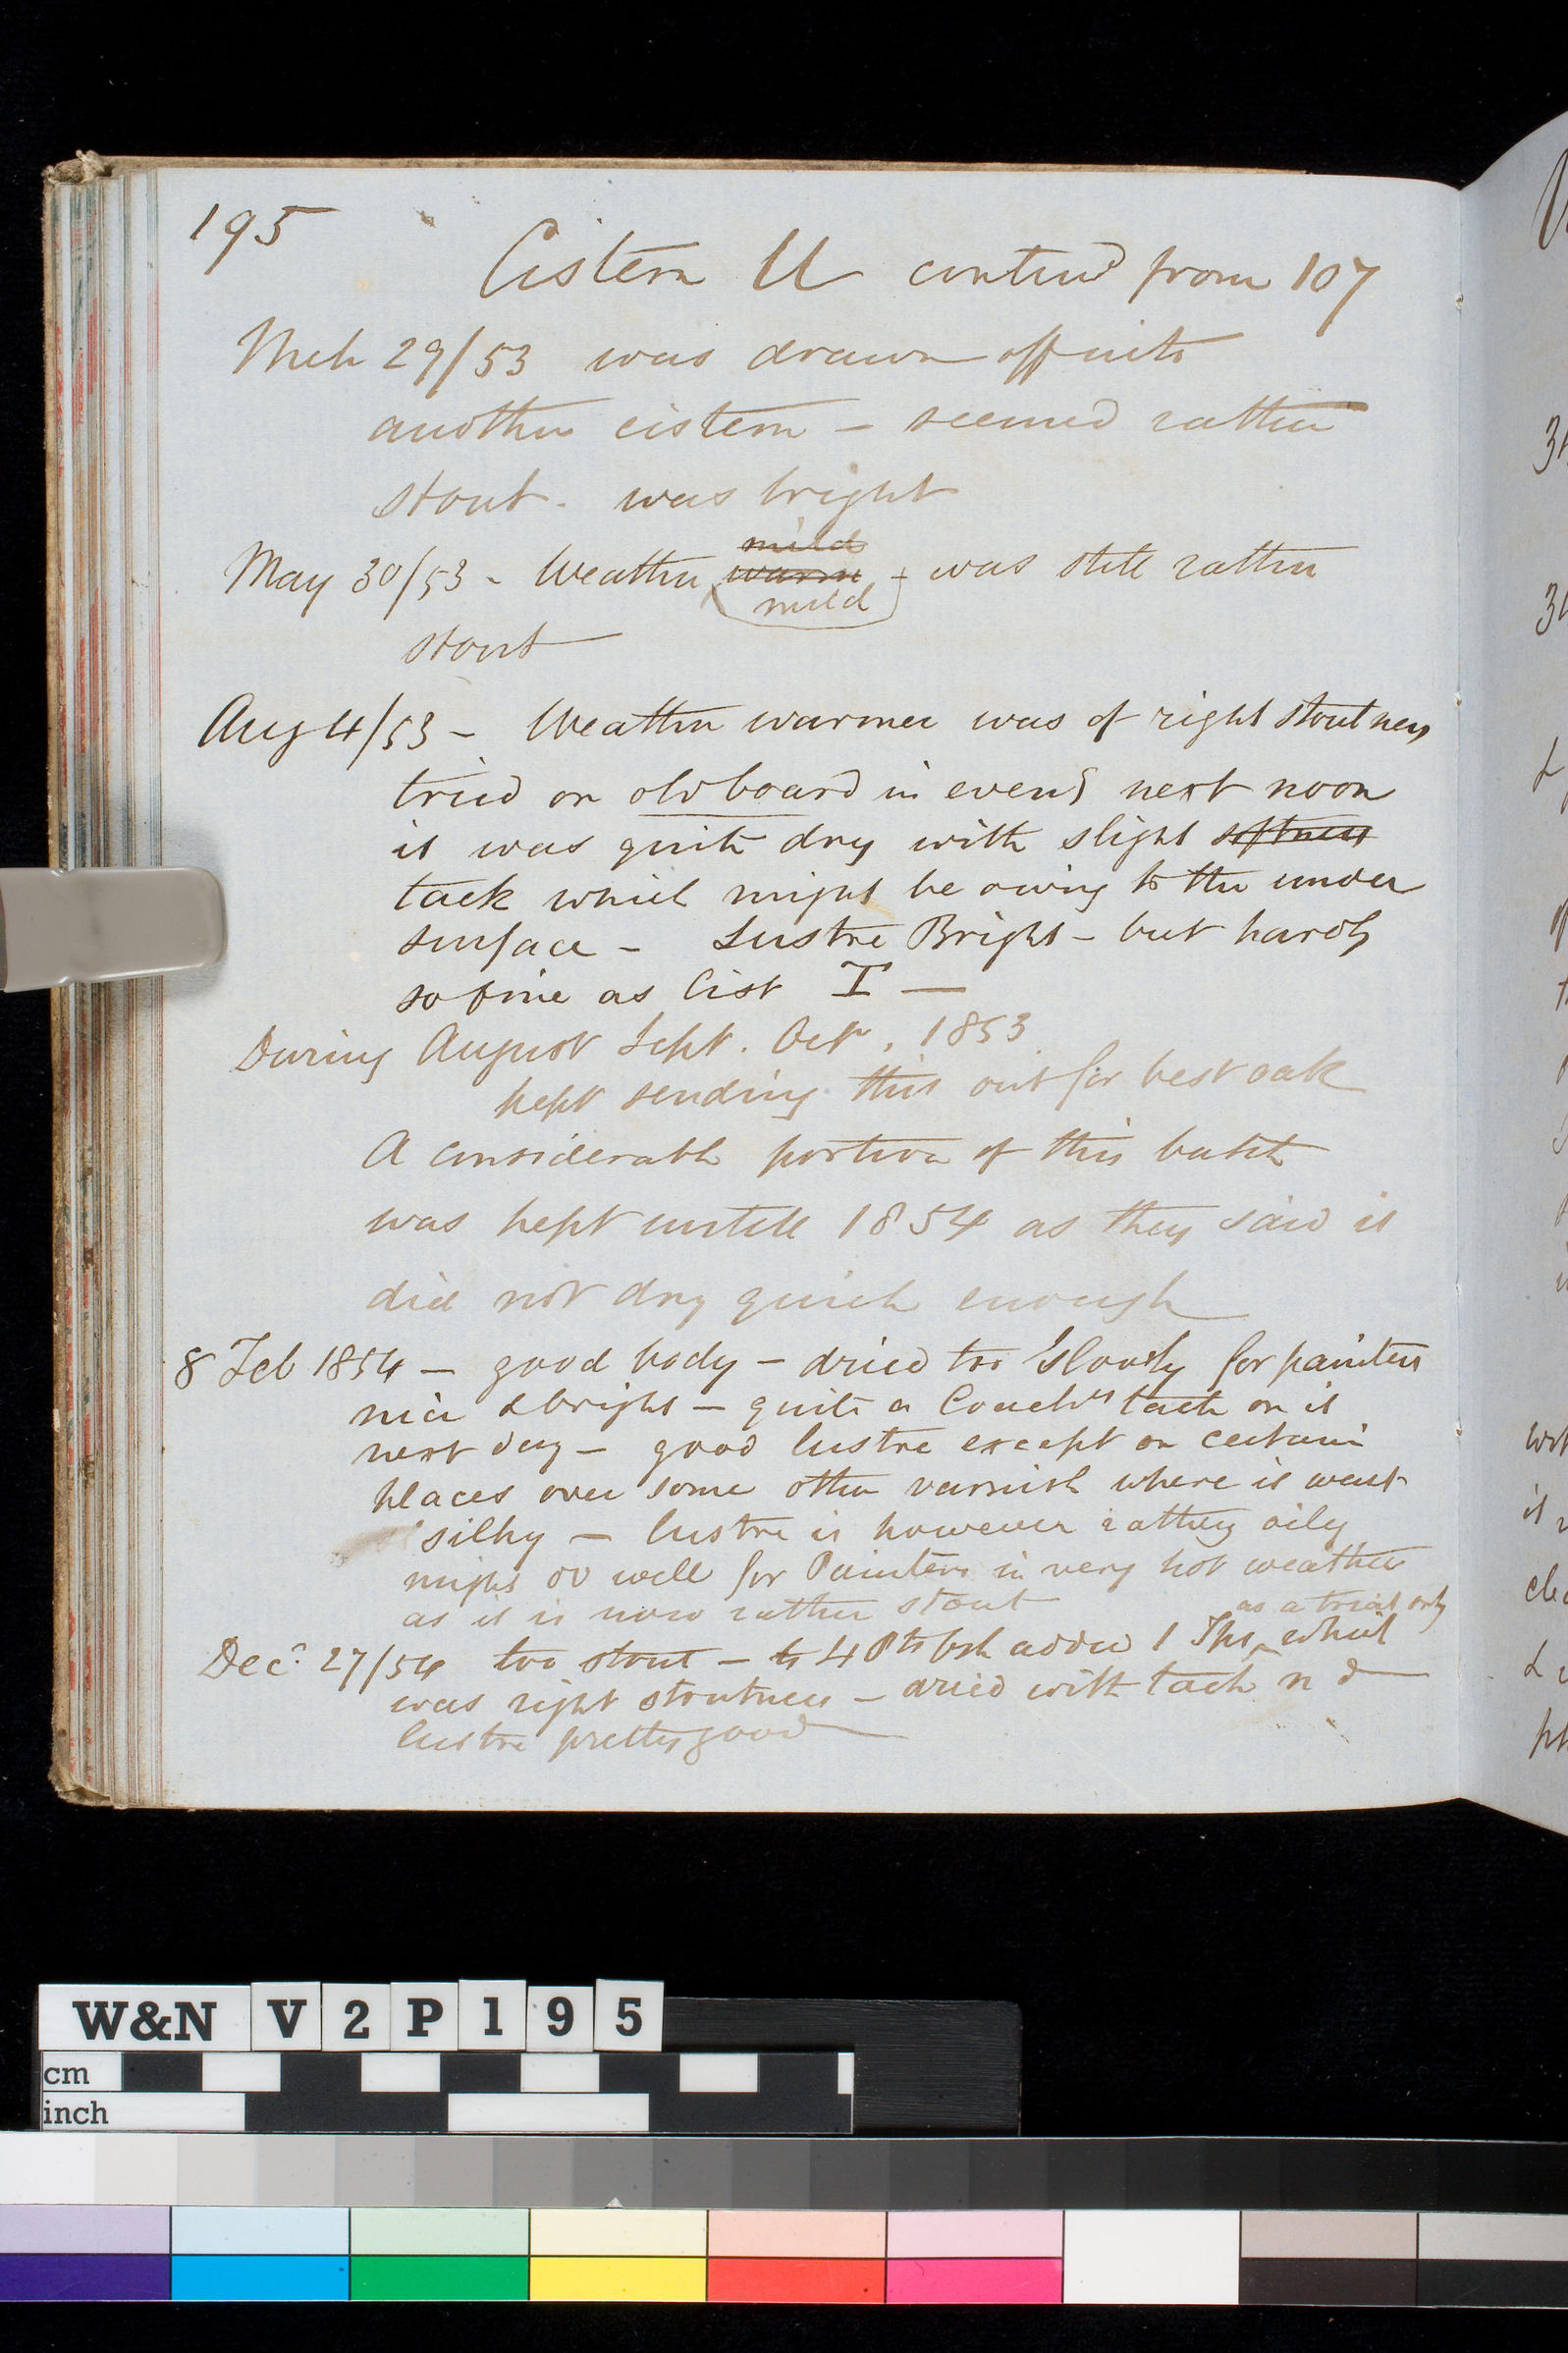 195
Cistern U contind from 107
Mch 29/53 was drawn off into
another cistern - seemed rather
stout. was bright
mild
May 30/53 - Weather warm - was still rather
mild
stout
Aug 4/53 - Weather warmer was of right stoutness
tried on old board in eveng next noon
it was quite dry with slight softness
tack which might be owing to the under
surface - Lustre Bright - but hardly
so fine as Cist T —
During August Sept. Octr. 1853
kept sending this out for best oak
A considerable portion of this batch
was kept untill 1854 as they said it
did not dry quick enough
8 Feb 1854 — good body - dried too slowly for painters
nice & bright — quite a Coachrs tack on it
next day - good lustre except on certain
places over some other varnish where it went
silky — lustre is however rather oily
might do well for Painters in very hot weather
as it is now rather stout
as a trial only
Decr 27/54 too stout - to 4 Pts added 1 which
was right stoutness - dried with tack n d
lustre pretty good
W&N V2P195
cm
inch